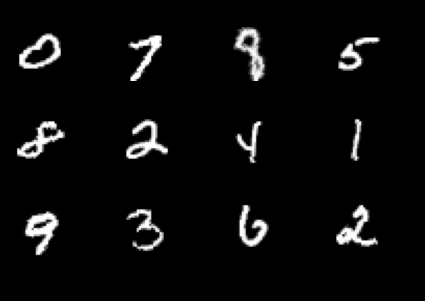 0 7 8 5
8 2 4 1
9 3 6 2